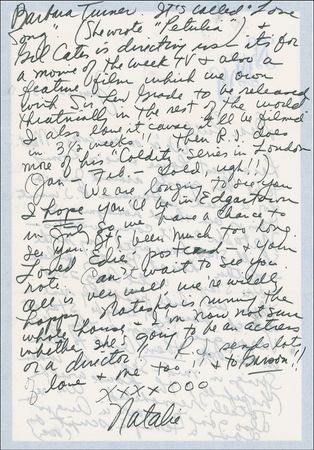 Barbara Turner. It's called "Love
Song" (She wrote "Petulia") &
Bill Cates is directing just it for
a movie of the week TV & also a
feature film which we own
with Sir Lew Grade to be released
theatrically in the rest of the world
I also love it cause it'll be filmed
in 3½ weeks!! Then R.J. does
more of his "Colditz" series in London
(Jan – Feb. – cold, ugh!!)
We are longing to see you
I hope you'll be in Edgartown
in so we have a chance to
see you. It's been much too long.
Loved Edie, postcard – & your
note. Can't wait to see you
All is very well we're wildly
happy, Natasha is running the
whole house & I'm now not sure
whether she's going to be an actress
or a director! R.J. sends lots
of love & me too!! & to Barson!!
XXXX OOO
Natalie